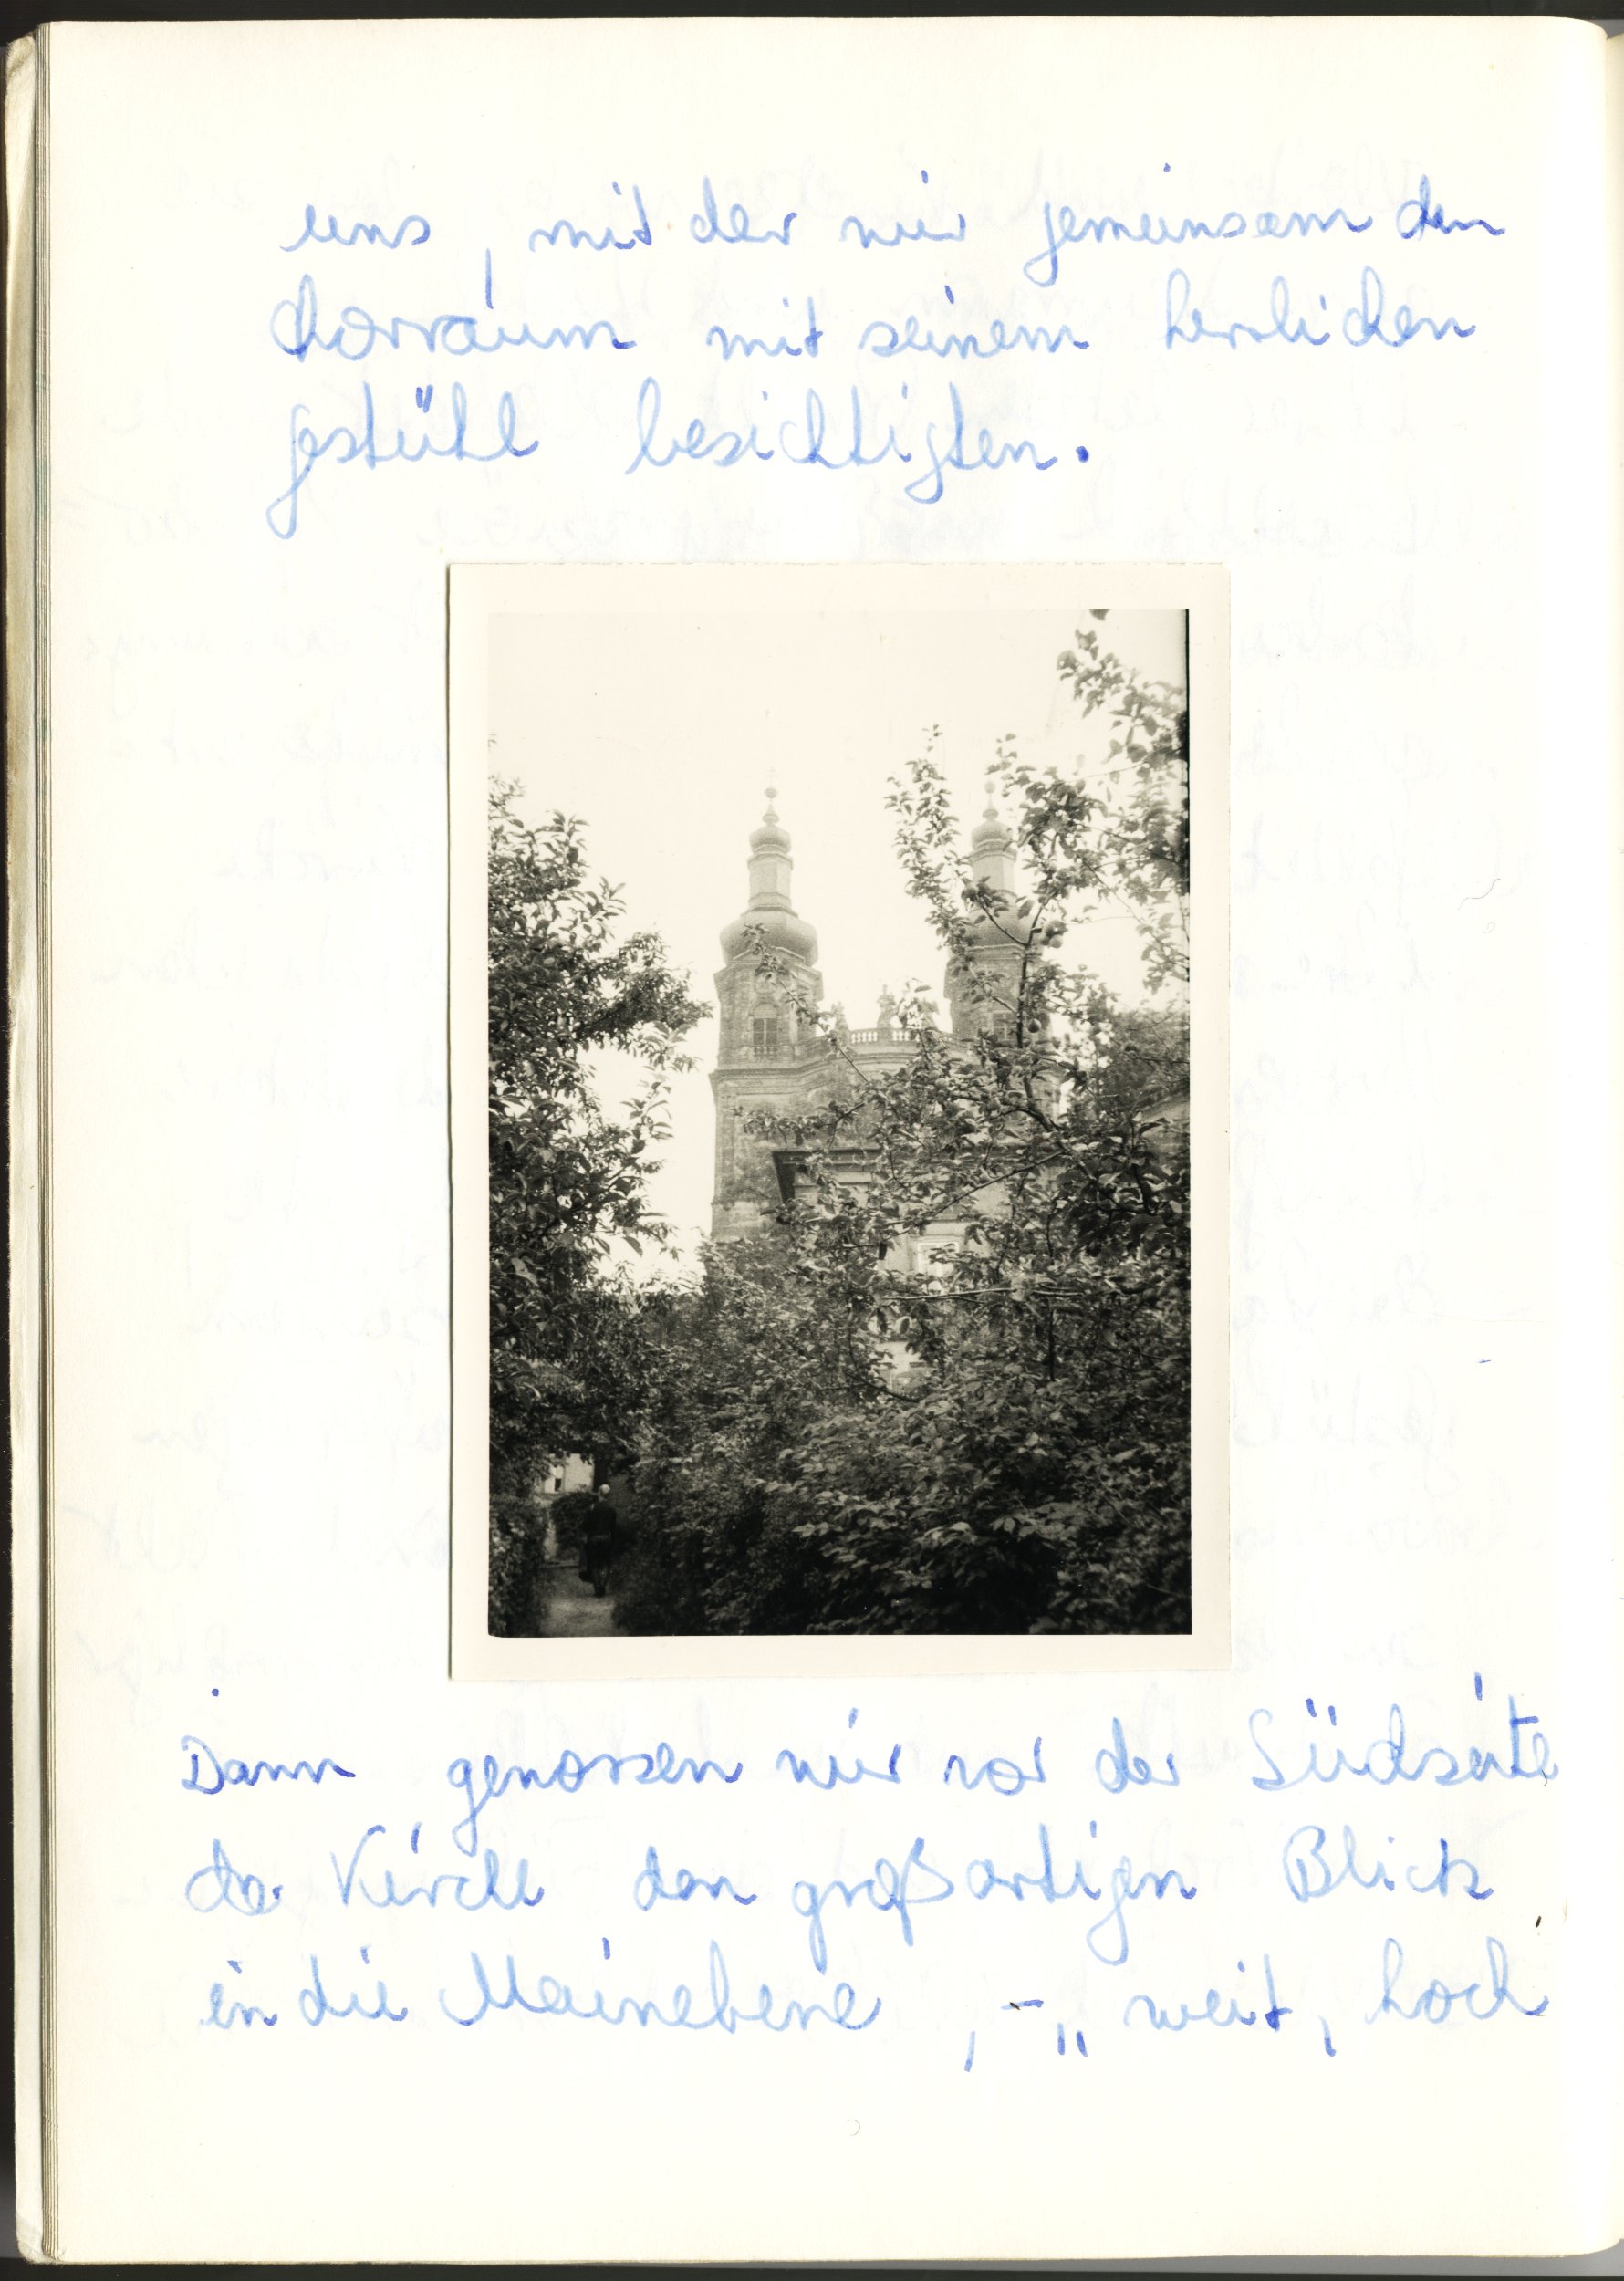 uns, mit der wir gemeinsam den
Chorraum mit seinem herrlichen
gestühl besichtigten.
Dann genossen wir vor der Südseite
der Kirche den großartigen Blick
in die Mainebene, -„ weit, hoch